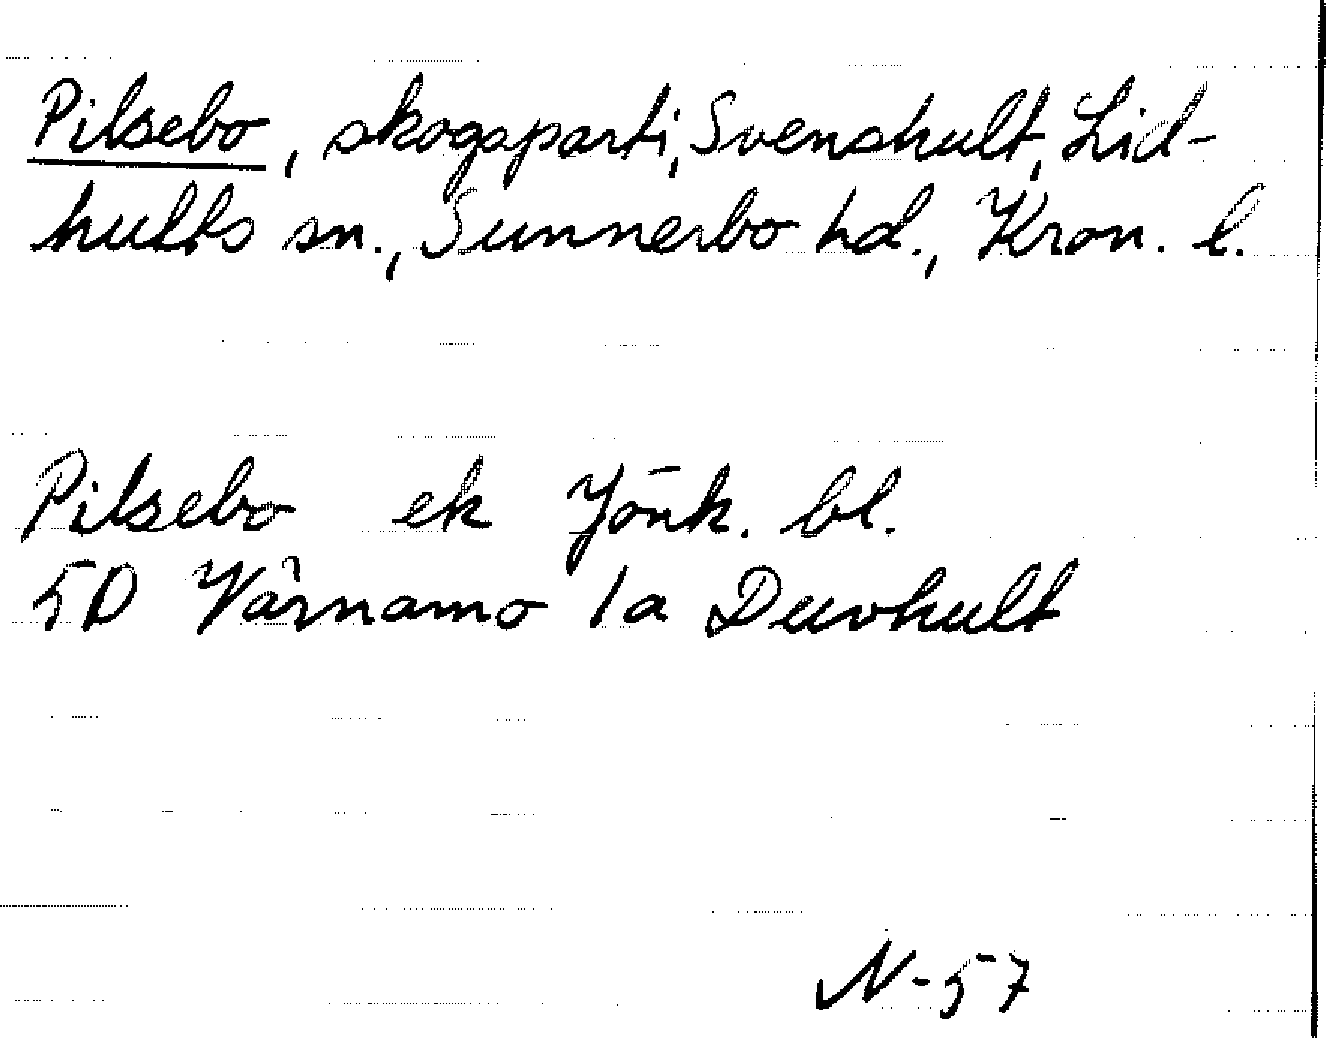 Pilsebo, skogsparti, Svenshult, Lid-
hults sn., Sunnerbo hd., Kron. l.
Pilsebo ek Jönk. bl.
5D Värnamo 1a Duvhult
N-57